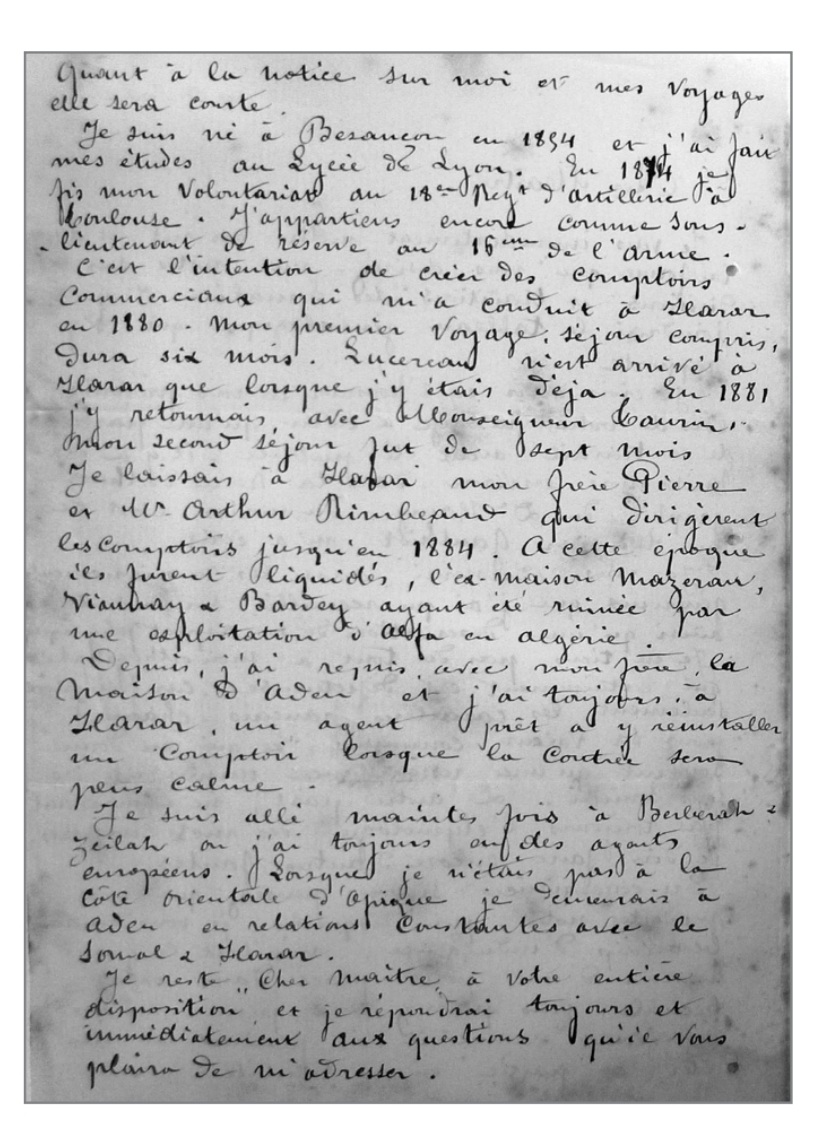 Quant à la notice sur moi et mes voyages
elle sera courte.
Je suis né à Besancon en 1854 et j'ai fait
mes études au Lycée de Lyon. En 1874 je
fis mon volontariat au 18e Regt d'artillerie à
Toulouse. J'appartiens encore comme sous-
-lieutenant de réserve au 16eme de l'arme.
C'est l'intention de créer des comptoirs
Commerciaux qui m'a conduit à Harar
en 1880. Mon premier voyage, séjour compris,
dura six mois. Lucereau n'est arrivé à
Harar que lorsque j'y étais déja. En 1881
j'y retournais avec Monseigneur Taurin,
mon second séjour fut de sept mois
Je laissais à Harar mon frère Pierre
et Mr Arthur Rimbeaud qui dirigèrent
les comptoirs jusqu'en 1884. A cette époque
ils furent liquidés, l'ex-maison Mazeran,
Viannay & Bardey ayant été ruinée par
une exploitation d'alfa en algérie.
Depuis, j'ai repris, avec mon frère, la
Maison d'Aden et j'ai toujours, à
Harar, un agent prêt a y réinstaller
un Comptoir lorsque la Contrée sera
plus calme.
Je suis allé maintes fois à Berberah &
Zeilah ou j'ai toujours eu des agents
européens. Lorsque je n'étais pas à la
Côte orientale d'afrique je demeurais à
Aden en relations Constantes avec le
Somal & Harar.
Je reste, Cher Maître, à votre entière
disposition et je répondrai toujours et
immédiatement aux questions qu'il vous
plaira de m'adresser.